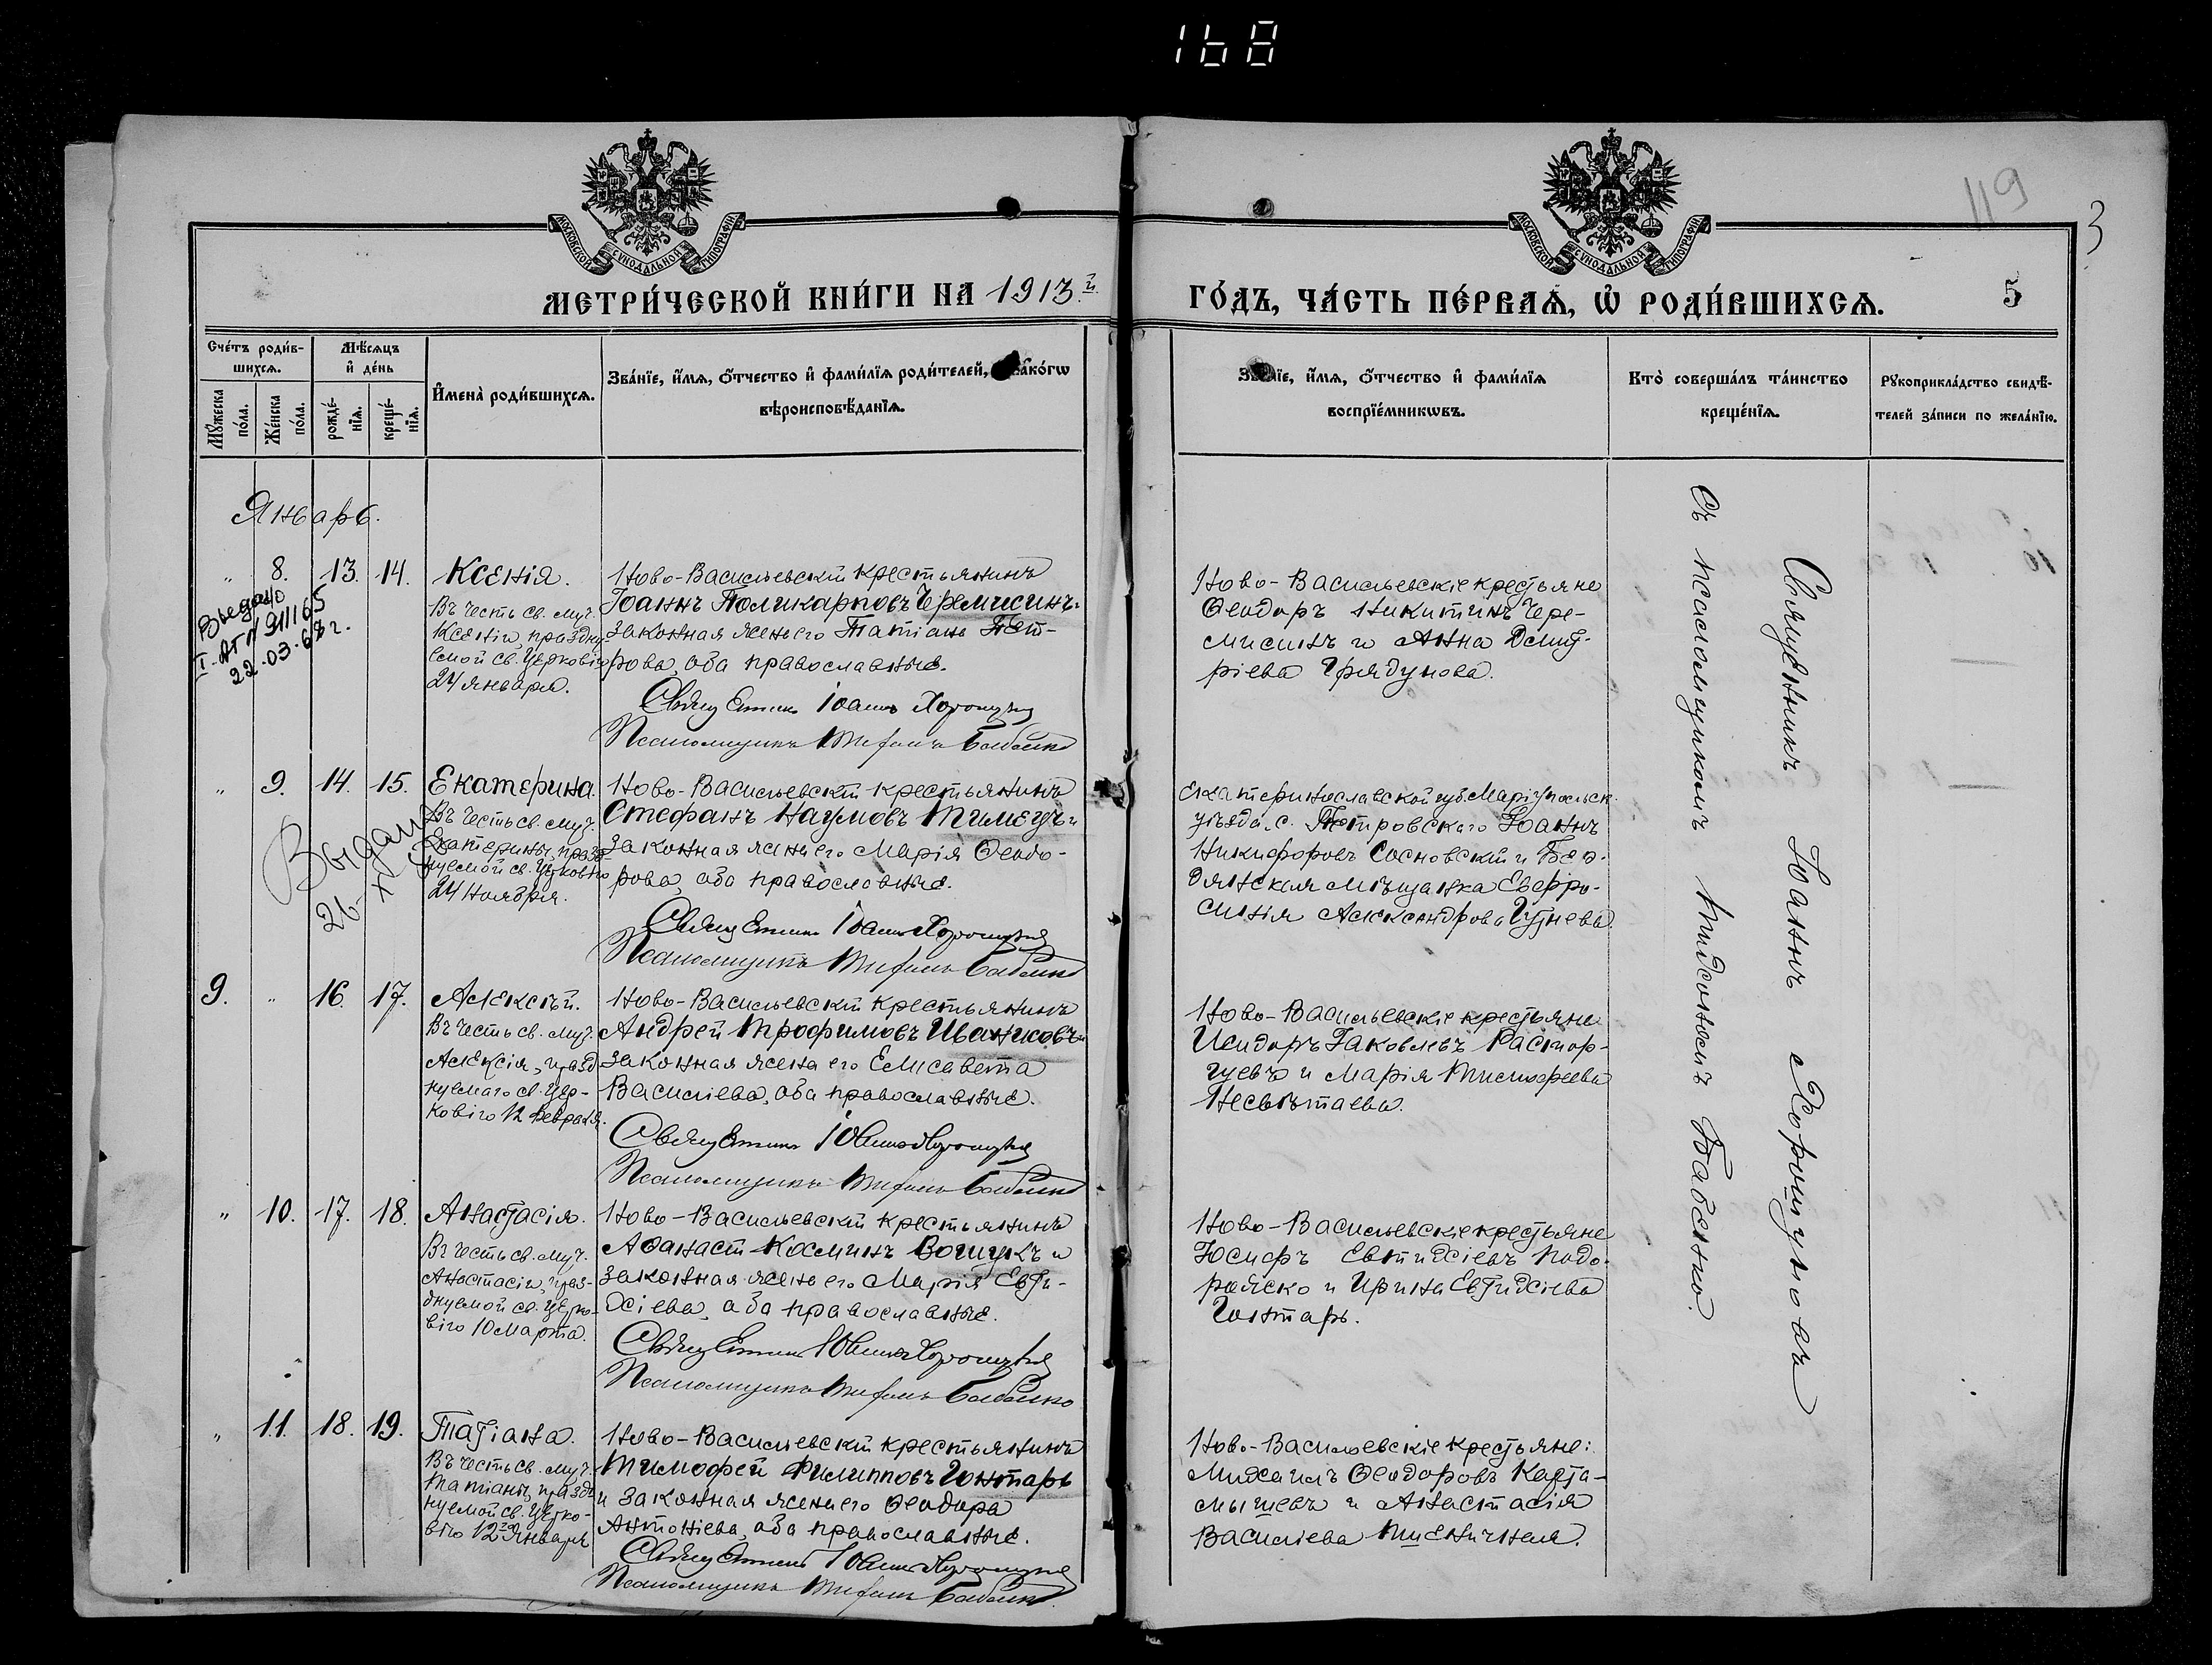 168
119
3
МОСКОВСКОЙ СѴНОДАЛЬНОЙ ТИПОГРАФІИ
МОСКОВСКОЙ СѴНОДАЛЬНОЙ ТИПОГРАФІИ
МЕТРИ́ЧЕСКОЙ КНИ́ГИ НА 1913.й
ГО́ДЪ, ЧА́СТЬ ПЕ́РВАЯ, Ѡ҆ РОДИ́ВШИХСЯ.
5
Сче́тъ роди́в-
шихся.
Мѣ́сяцъ
и҆ де́нь
Мꙋ́жеска
по́ла.
Же́нска
по́ла.
рожде́-
нїя.
креще́-
нїя.
И҆мена̀ роди́вшихся.
Зва́нїе, и҆́мя, ѻ҆́тчество и҆ фами́лїя роди́телей,
вѣроисповѣ́данїя.
и҆́мя, ѻ҆́тчество и҆ фами́лїя
воспрїе́мникѡвъ.
Кто̀ соверша́лъ та́инство
креще́нїя.
Рꙋкоприкла́дство свидѣ́-
телей за́писи по жела́нїю.
Январь.
" 8. 13. 14. Ксенія.
Въ честь св. муч.
Ксеніи праздну
емой св. Церковію
24 января.
Выдано
22.03.67г.
Ново-Васильевскій крестьянинъ
Іоаннъ Поликарповъ Черемисинъ и
законная жена его Татіана Пет-
рова, оба православные.
Священникъ Іоаннъ Хорошунъ
Псаломщикъ Бабенко
Ново-Васильевскіе крестьяне
Ѳеодоръ Никитинъ Чере-
мисинъ и Анна Дмит-
ріева Грядунова.
" 9. 14. 15. Екатерина.
Въ честь св. муч.
Екатерины, празд
нуемой св. Церковію
24 Ноября.
Выдан
26-X
Ново-Васильевскій крестьянинъ
Стефанъ Наумовъ и
законная жена его Марія Ѳеодо-
рова, оба православные.
Священникъ Іоаннъ
Псаломщикъ Бабенко
Екатеринославской губ. Маріупольск.
уѣзда, с. Петровскаго Іоаннъ
Никифоровъ Сосновскій и Бер-
дянская мѣщанка Евфро-
синія Александрова
9. " 16. 17. Алексѣй.
Въ честь св. муч.
Алексія, празд
нуемаго св. Цер-
ковію 12 Февраля.
Ново-Васильевскій крестьянинъ
Андрей Трофимовъ Иваниковъ и
законная жена его Елисавета
Василіева, оба православные.
Священникъ Іоаннъ
Псаломщикъ Бабенко
Ново-Васильевскіе крестьяне
Исидоръ Іаковлевъ Растор-
гуевъ и Марія Тимофеева
Несвѣтаева.
" 10. 17. 18. Анастасія.
Въ честь св. муч.
Анастасіи, праз-
днуемой св. Церко-
вію 10 Марта.
Ново-Васильевскій крестьянинъ
Аѳанасій Косминъ и
законная жена его Марія Евти-
хіева, оба православные.
Священникъ Іоаннъ
Псаломщикъ Бабенко
Ново-Васильевскіе крестьяне
Іосифъ Евтихіевъ Подо-
рожко и Ирина Евтихіева
Гонтарь.
" 11. 18. 19. Татіана.
Въ честь св. муч.
Татіаны, празд-
нуемой св. Церко-
вію 12го Января
Ново-Васильевскій крестьянинъ
Тимофей Филипповъ Гонтарь
и законная жена его Ѳеодора
Антоніева, оба православные.
Священникъ Іоаннъ
Псаломщикъ Бабенко
Ново-Васильевскіе крестьяне:
Михаилъ Ѳеодоровъ Карта-
мышевъ и Анастасія
Василіева Пшеничная.
Священникъ Іоаннъ Хорошуновъ
Съ псаломщикомъ Бабенко.